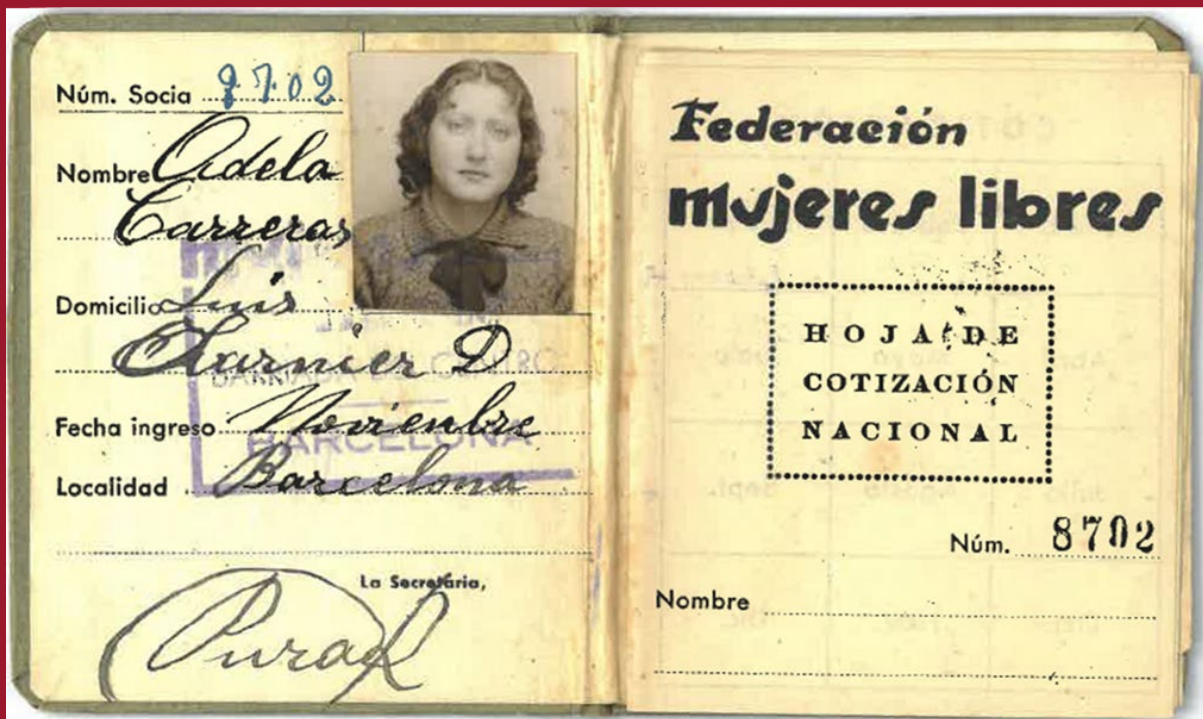 Núm. Socia 8702
Nombre Adela
Carreras
Domicilio Luis
D
BARRIADA DEL CENTRO
Fecha ingreso Noviembre
BARCELONA
Localidad Barcelona
La Secretaria,
Federación
mujeres libres
HOJA DE
COTIZACIÓN
NACIONAL
Núm. 8702
Nombre